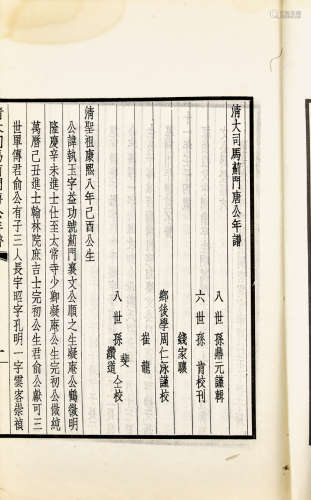 清大司馬薊門唐公年譜
八世孫鼎元謹輯
六世孫肯校刊
錢家驤
鄉後學周仁泳謹校
崔龍
斐
八世孫纘道仝校
清聖祖康熙八年己酉公生
公諱執玉字益功號薊門襄文公順之生凝庵公鶴徵明
隆慶辛未進士仕至太常寺少卿凝庵公生完初公傚純
萬曆己丑進士翰林院庶吉士完初公生君俞公獻可三
世單傳君俞公有子三人長宇昭字孔明一字雲客崇禎
清大司馬薊門唐公年譜
一